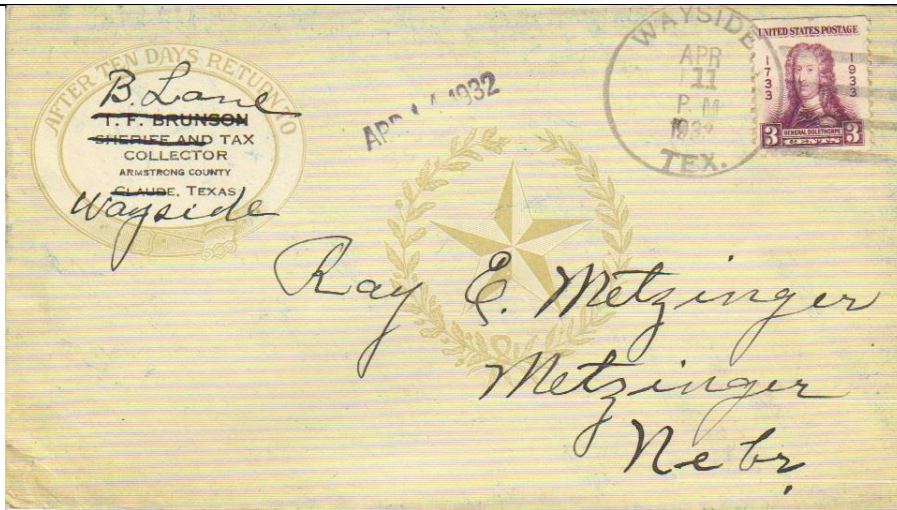 AFTER TEN DAYS RETURN TO
B. Lane
T. F. BRUNSON
SHERIFF AND TAX
COLLECTOR
ARMSTRONG COUNTY
CLAUDE, TEXAS
Wayside
APR 1932
WAYSIDE
APR
11
P M
TEX.
UNITED STATES POSTAGE
1733
1933
3 GENERAL OGLETHORPE 3
CENTS
Ray E. Metzinger
Metzinger
Nebr.